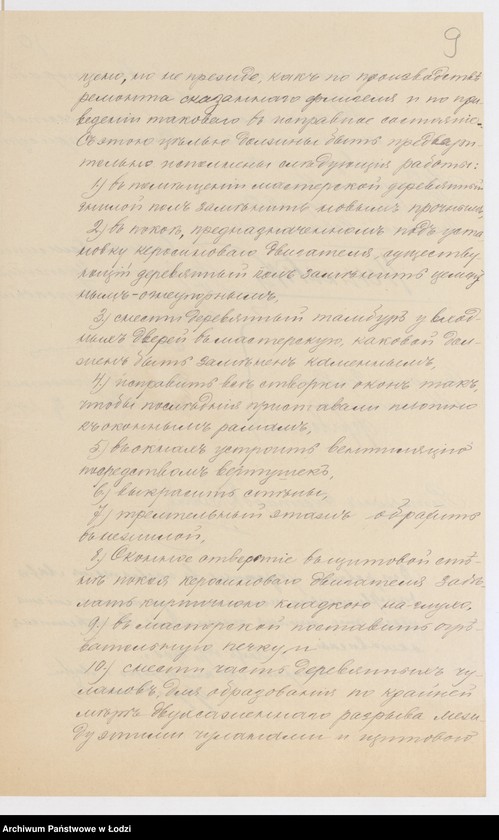 9
щено, но не прежде, какъ по производствѣ
ремонта сказаннаго флигеля и по при-
веденіи таковаго въ исправное состояніе.
Съ этою цѣлью должны быть предвари-
тельно исполнены слѣдующія работы:
1) въ помѣщеніи мастерской деревянный
гнилой полъ замѣнить новымъ прочнымъ,
2) въ покоѣ, предназначенномъ подъ уста-
новку керосиноваго двигателя, существу-
ющій деревянный полъ замѣнить
нымъ-огнеупорнымъ,
3) снести деревянный тамбуръ у вход-
ныхъ дверей въ мастерскую, каковой дол-
женъ быть замѣненъ каменнымъ,
4) исправить всѣ створки оконъ такъ,
чтобы послѣднія приставали плотно
къ оконнымъ рамамъ,
5) въ окнахъ устроить вентиляцію
посредствомъ вертушекъ,
6) выкрасить стѣны,
7) третельный этажъ обратить
въ нежилой,
8) Оконное отверстіе въ щитовой стѣ-
нѣ покоя керосиноваго двигателя задѣ-
лать кирпичною кладкою на-глухо,
9) въ мастерской поставить согрѣ-
вательную печку, и
10) снести часть деревянныхъ чу-
лановъ, для образованія по крайней
мѣрѣ двухсаженнаго разрыва меж-
ду этими чуланами и щитовою
Archiwum Państwowe w Łodzi